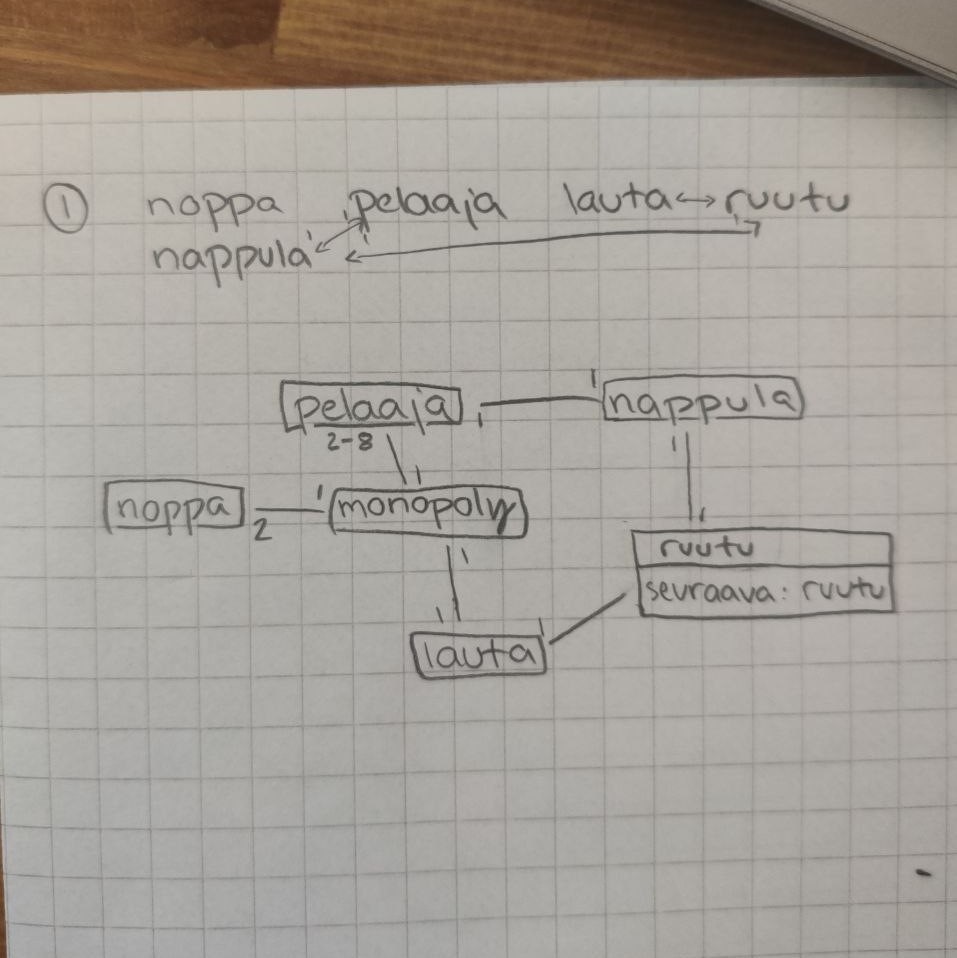 ① noppa pelaaja lauta ↔ ruutu
nappula
pelaaja 1 1 nappula
2-8 1 1
noppa 2 1 monopoly 1
1 ruutu
seuraava: ruutu
1 1
lauta